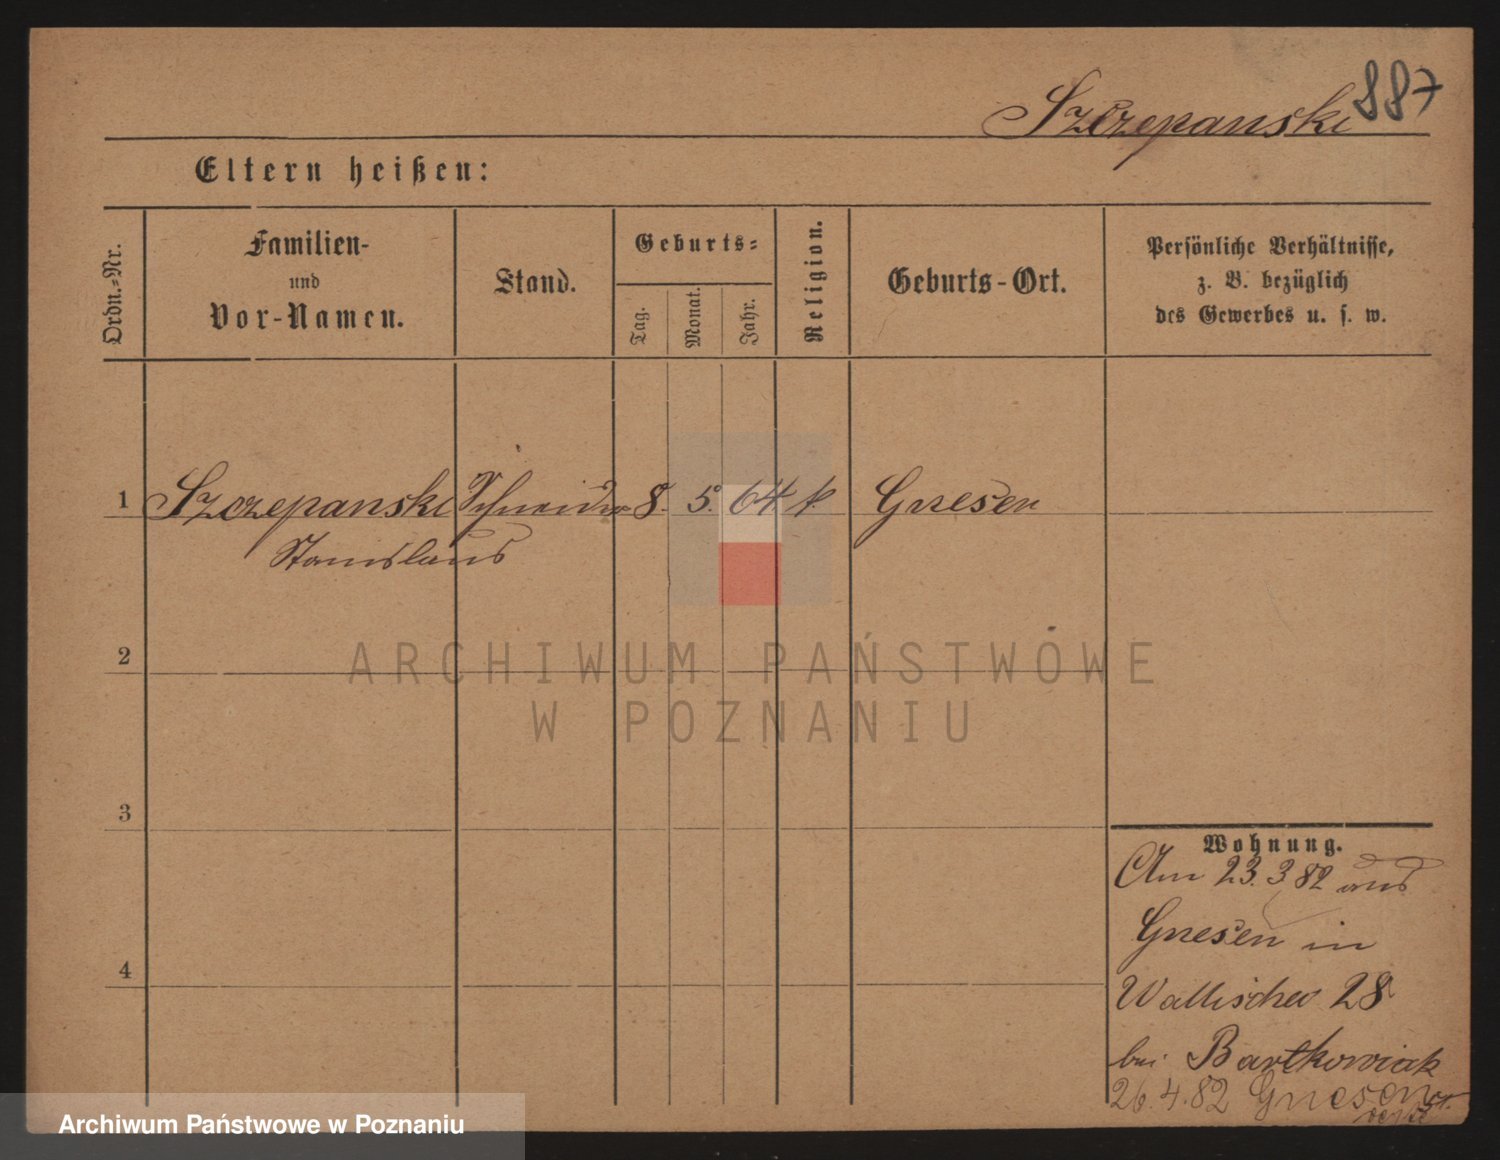 887
Szczepanski
Eltern heißen:
Ordn.-Nr.
Familien-
und
Vor-Namen.
Stand.
Geburts-
Tag.
Monat.
Jahr.
Religion.
Geburts-Ort.
Persönliche Verhältnisse,
z. B. bezüglich
des Gewerbes u. s. w.
1 Szczepanski Schneider 8. 5. 64 k. Gnesen
Stanislaus
2
3
4
Wohnung.
Am 23. 3 82 aus
Gnesen in
Wallischei 28
bei Bartkowiak
26.4.82 Gnesen
ARCHIWUM PAŃSTWOWE
W POZNANIU
Archiwum Państwowe w Poznaniu